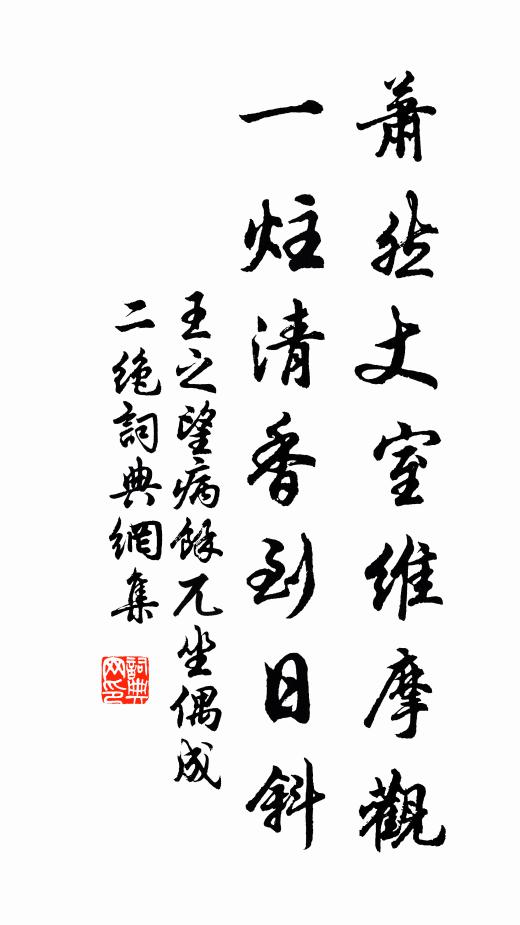 蕭然丈室維摩觀
一炷清香到日斜
王之望病餘兀坐偶成
二絶詞典網集
詞典
网印